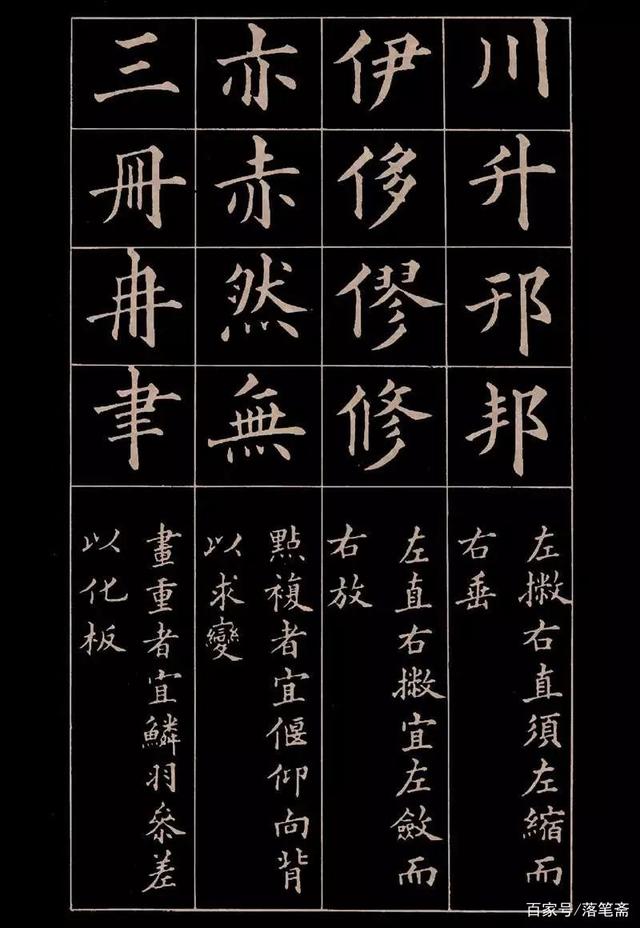 川升邢邦
左撇右直須左縮而
右垂
伊侈僇修
左直右撇宜左斂而
右放
亦赤然無
點複者宜偃仰向背
以求變
三冊冉聿
畫重者宜鱗羽參差
以化板
百家号/落笔斋